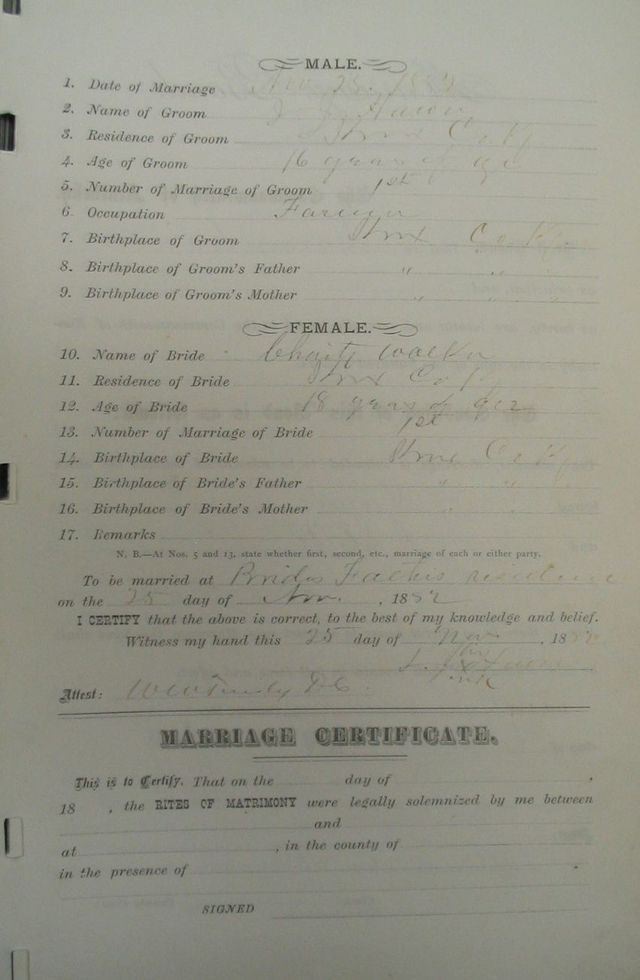 MALE.
1. Date of Marriage Nov 25, 1882
2. Name of Groom
3. Residence of Groom Co Ky
4. Age of Groom 16 years of age
5. Number of Marriage of Groom 1st
6. Occupation Farmer
7. Birthplace of Groom Co Ky
8. Birthplace of Groom's Father " " "
9. Birthplace of Groom's Mother " " "
FEMALE.
10. Name of Bride Charity Walker
11. Residence of Bride Co Ky
12. Age of Bride 18 years of age
13. Number of Marriage of Bride 1st
14. Birthplace of Bride Co Ky
15. Birthplace of Bride's Father " " "
16. Birthplace of Bride's Mother " " "
17. Remarks
N. B.—At Nos. 5 and 13, state whether first, second, etc., marriage of each or either party.
To be married at Brides Fathers residence
on the 25 day of Nov. , 1882
I CERTIFY that the above is correct, to the best of my knowledge and belief.
Witness my hand this 25 day of Nov , 1882
his
mark
Attest:
MARRIAGE CERTIFICATE.
This is to Certify, That on the day of ,
18 , the RITES OF MATRIMONY were legally solemnized by me between
and
at , in the county of
in the presence of
SIGNED